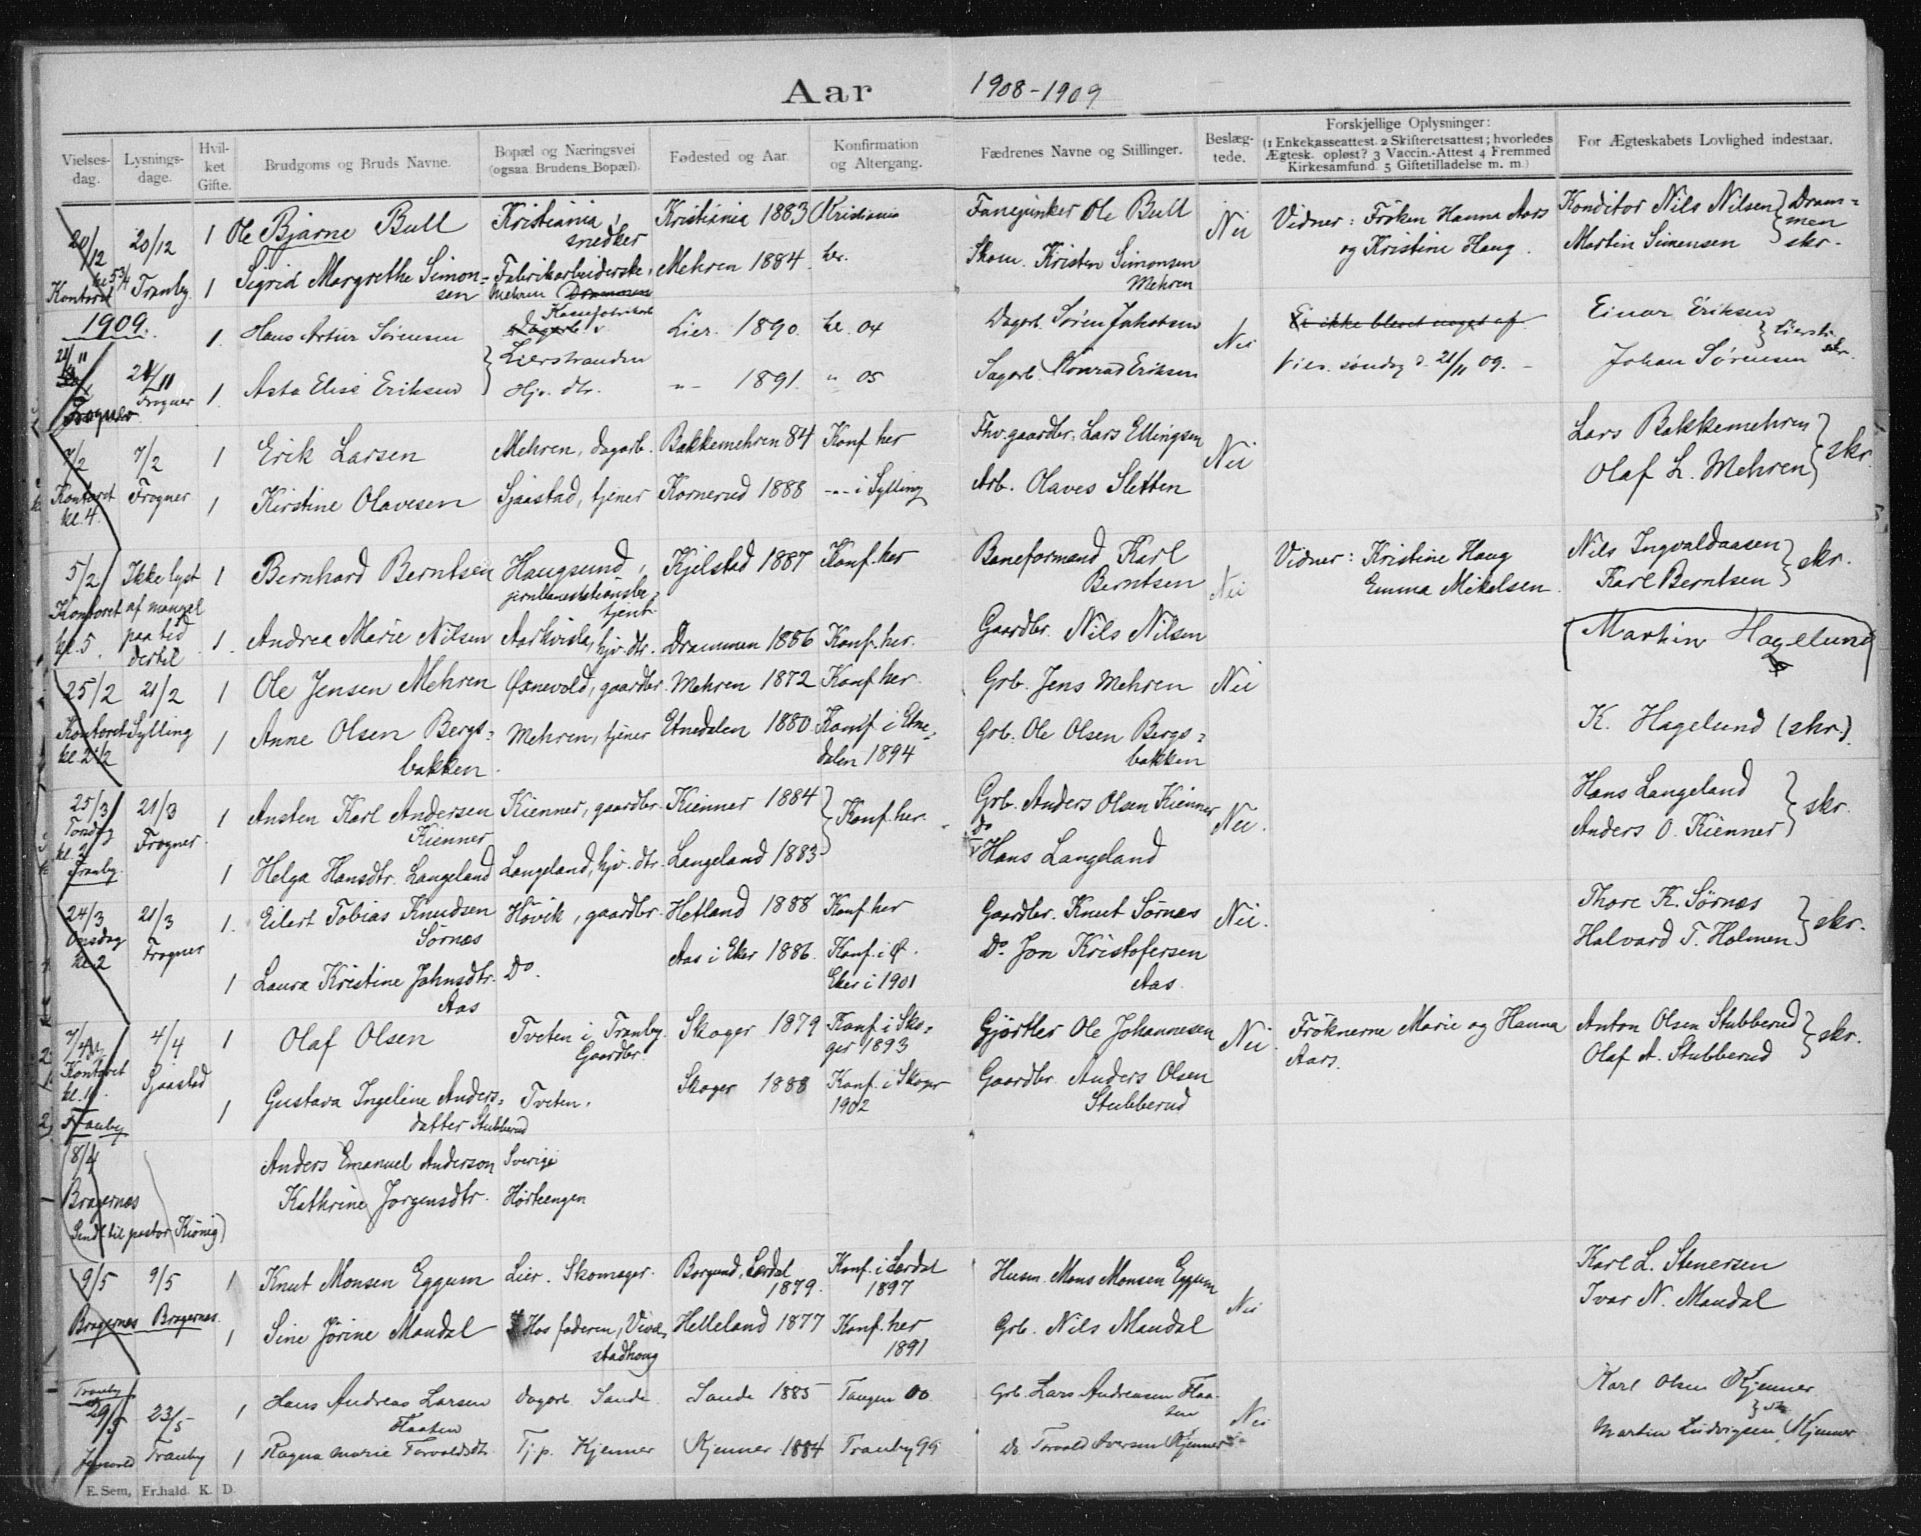 Aar 1908-1909
Vielses-dag. Lysnings-dage. Hvil-ket Gifte. Brudgoms og Bruds Navne. Bopæl og Næringsvei (ogsaa Brudens Bopæl). Fødested og Aar. Konfirmation og Altergang. Fædrenes Navne og Stillinger. Beslæg-tede. Forskjellige Oplysninger: (1 Enkekasseattest. 2 Skifteretsattest; hvorledes Ægtesk. opløst? 3 Vaccin.-Attest 4 Fremmed Kirkesamfund. 5 Giftetilladelse m. m.) For Ægteskabets Lovlighed indestaar.
20/12 20/12 1 Ole Bjarne Bull Kristiania, snedker Kristiania 1883 Kristiania Fanejunker Ole Bull Nei Vidner: Frøken Hanna Aars og Kristine Haug. Konditor Nils Nilsen Dram-men
Kontoret Tranby 1 Sigrid Margrethe Simon-sen Fabrikarbeiderske, Mehren Drammen Mehren 1884. her. Skom. Kristen Simonsen Mehren Martin Simensen skr.
1909.
21/11 21/11 1. Hans Artur Sørensen Dagarb. Lierstranden Lier. 1890. he. 04 Dagarb. Søren Jakobsen Nei Er ikke blevet noget af. Einar Eriksen
Frogner Frogner 1. Asta Elise Eriksen Hjv. dtr. -"- 1891. " 05 Sagarb. Konrad Eriksen Vies. søndag d. 21/11 09. - Johan Sørensen
7/2 7/2 1 Erik Larsen Mehren, dagarb. Bakkemehren 84 Konf her Fhv. gaardbr. Lars Ellingsen Nei Lars Bakkemehren
Kontoret kl. 4. Frogner 1 Kirstine Olavesen Sjaastad, tjener Kornerud 1888 -"- i Sylling Arb. Olaves Sletten Olaf L. Mehren skr.
5/2 Ikke lyst 1 Bernhard Berntsen Haugsund, jernbanestationsbe-tjent Kjelstad 1887 Konf. her Baneformand Karl Berntsen Nei Vidner: Kristine Haug Emma Mikelsen. Nils Ingvaldaasen Karl Berntsen skr.
Kontoret kl. 5. af mangel paa tid dertil. 1. Andrea Marie Nilsen Aarkvisla, hjv. dtr. Drammen 1886 Konf. her. Gaardbr. Nils Nilsen (Martin Hagelund
25/2 21/2 1 Ole Jensen Mehren Øxnevold, gaardbr. Mehren 1872 Konf her. Grb. Jens Mehren Nei
Kontoret kl. 2 1/2 Sylling 1 Anne Olsen Bergs-bakken. Mehren, tjener Etnedalen 1880 Konf. i Etne-dalen 1894 Grb. Ole Olsen Bergs-bakken K. Hagelund (skr.).
25/3 Torsdag kl. 2 Tranby. 21/3 Frogner. 1 Ansten Karl Andersen Kienner Kienner, gaardbr. Kienner 1884 Konf. her. Grb. Anders Olsen Kienner Nei. Hans Langeland
1 Helga Hansdtr. Langeland Langeland, hjv. dtr. Langeland 1883 Do Hans Langeland Anders O. Kienner skr.
24/3 Onsdag kl. 2 21/3 Frogner 1. Eilert Tobias Knudsen Sørnæs Høvik, gaardbr. Hetland 1888 Konf. her Gaardbr. Knut Sørnæs Nei. Thore K. Sørnæs
1 Laura Kristine Johnsdtr. Aas Do. Aas i Eker 1886. Konf. i Ø. Eker i 1901 Do. Jon Kristofersen Aas. Halvard T. Holmen skr.
7/4 Kontoret kl. 1 Tranby 4/4 Sjaastad 1 Olaf Olsen Tveten i Tranby. Gaardbr. Skoger 1879 Konf. i Sko-ger 1893 Gjørtler Ole Johannesen Nei. Frøknerne Marie og Hanna Aars. Anton Olsen Stubberud
1 Gustava Ingeline Anders-datter Stubberud Tveten. Skoger 1888 Konf. i Skoger 1902 Gaardbr. Anders Olsen Stubberud Olaf A. Stubberud skr.
8/4 Anders Emanuel Anderson Sverige
Bragernes Kathrine Jørgensdtr. Hørteengen
Sendt til pastor Kiønig)
9/5 9/5 1 Knut Monsen Eggum Lier. Skomager. Borgund, Lærdal 1879. Konf. i Lærdal 1897 Husm. Mons Monsen Eggum Nei Karl L. Stenersen
Bragernes Bragernes. 1 Sine Jørine Mandal Hos faderen, Vive-stadhaug Helleland 1877 Konf. her 1891 Grb. Nils Mandal Ivar N. Mandal
Tranby 29/5 23/5 1 Hans Andreas Larsen Flaaten Dagarb. Sande. Sande 1885 Tangen 00 Grb. Lars Andreasen Flaa-ten Nei Karl Olsen Kjenner
Tranby 1 Ragna Marie Torvaldsdtr. Tj.p. Kjenner Kjenner 1884 Tranby 99 Do. Torvald Iversen Kjenner Martin Ludvigsen Kjenner
E. Sem, Fr.hald. K. D.